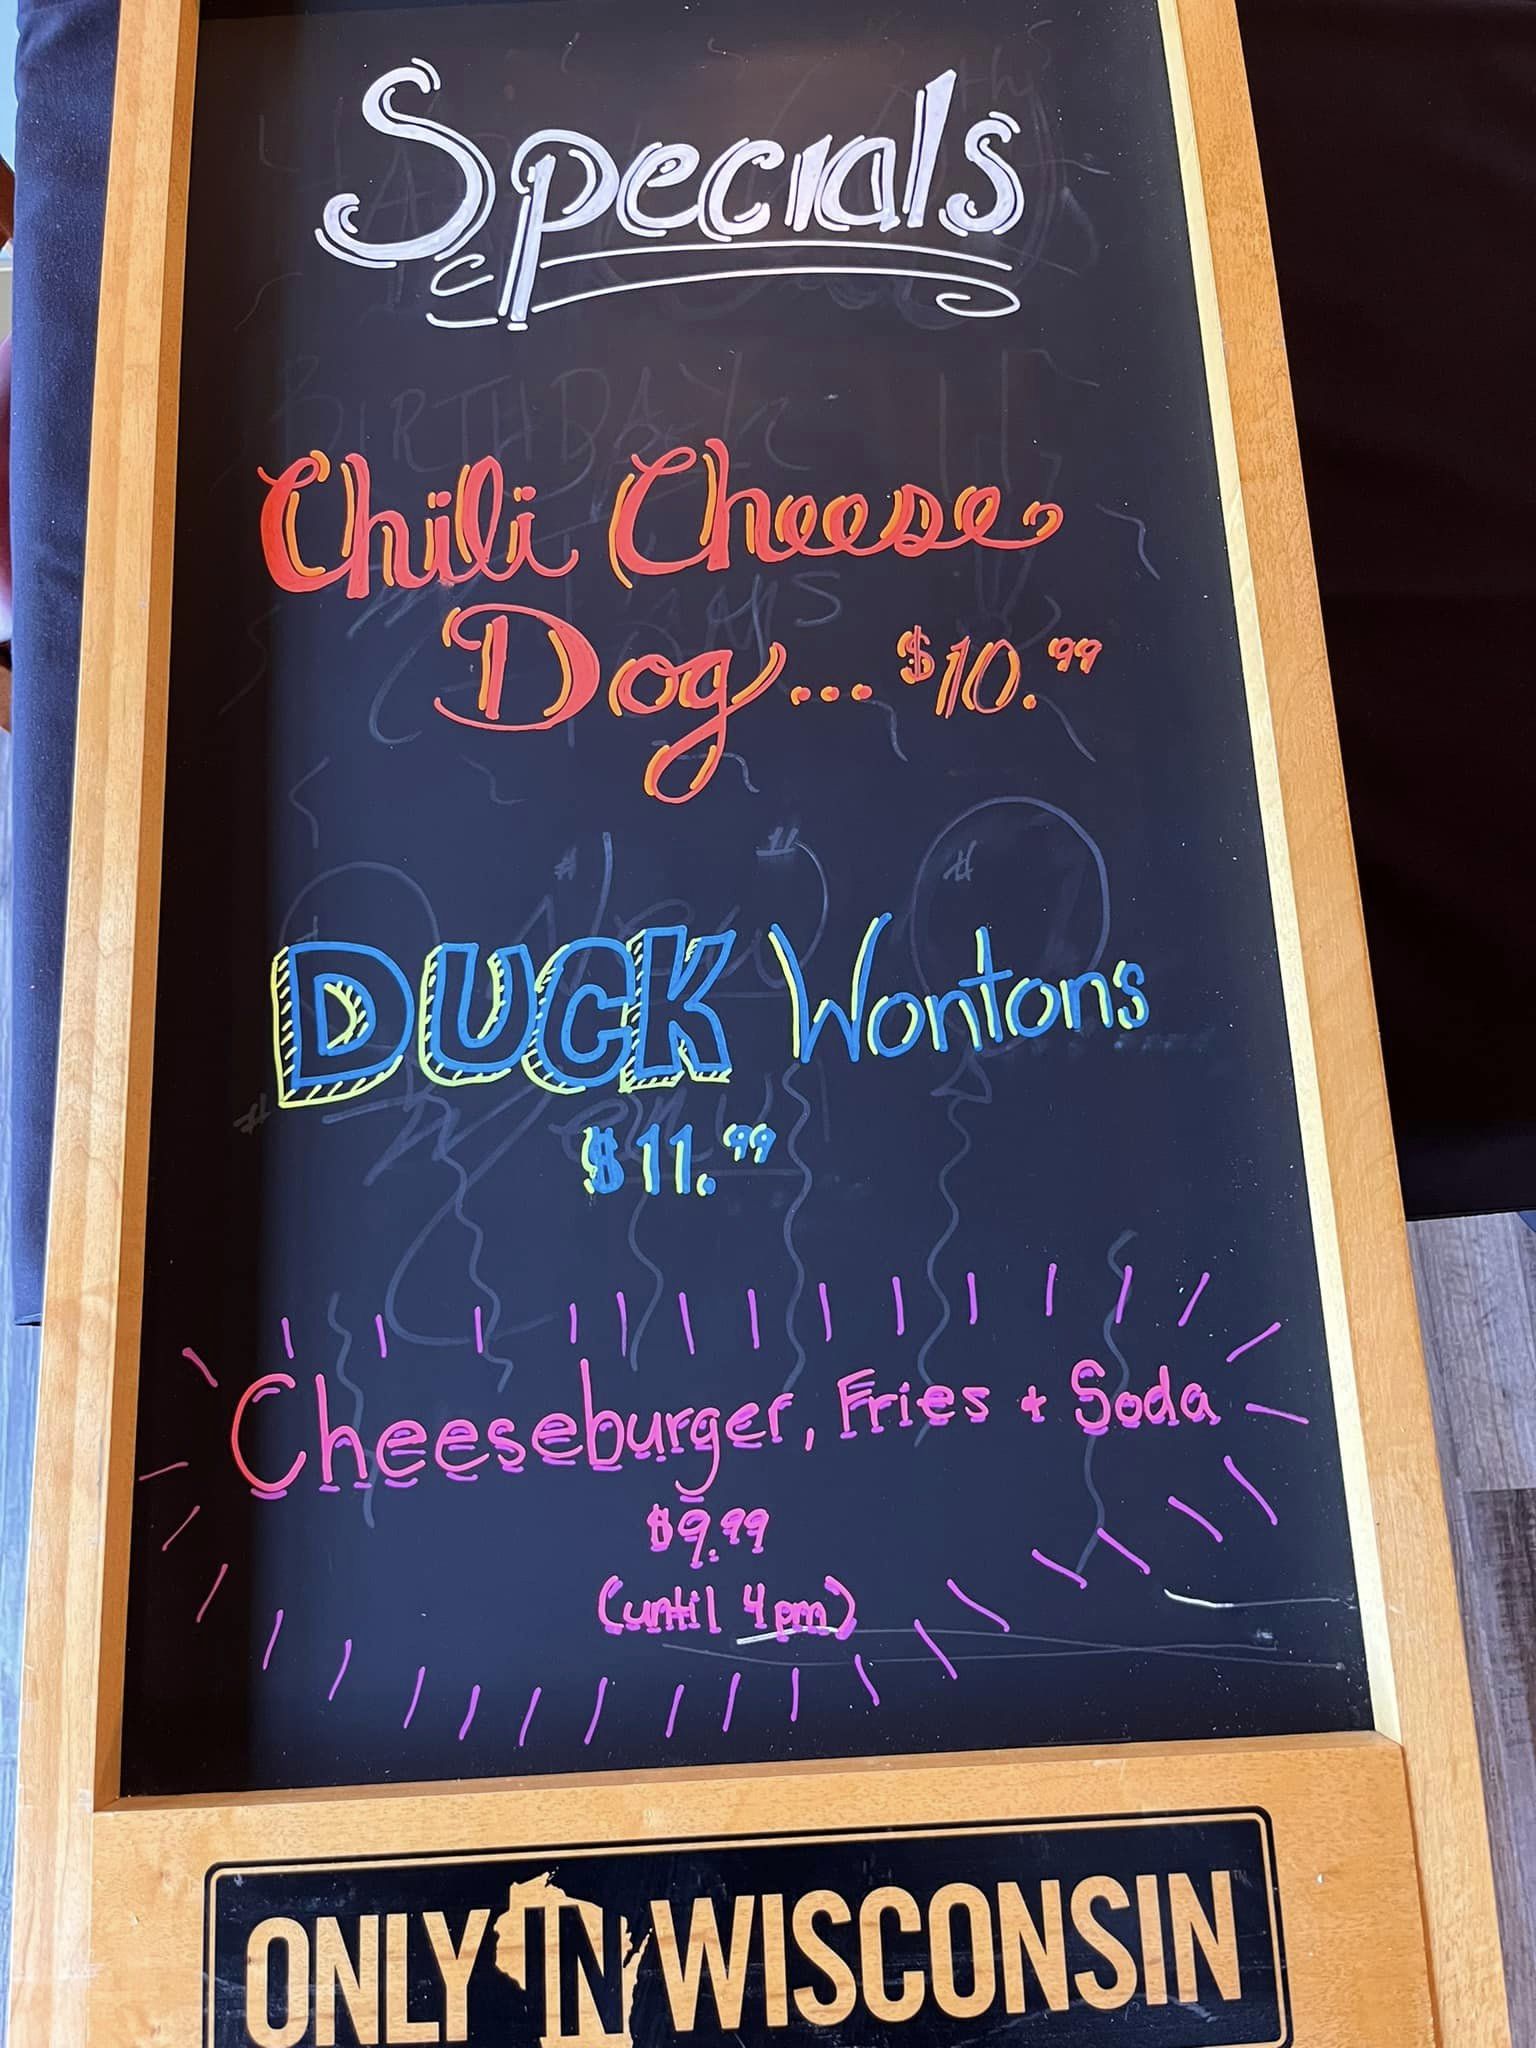 Specials
Chili Cheese
Dog... $10.99
DUCK Wontons
$11.99
Cheeseburger, Fries + Soda
$9.99
(until 4pm)
BIRTHDAY
ONLY IN WISCONSIN